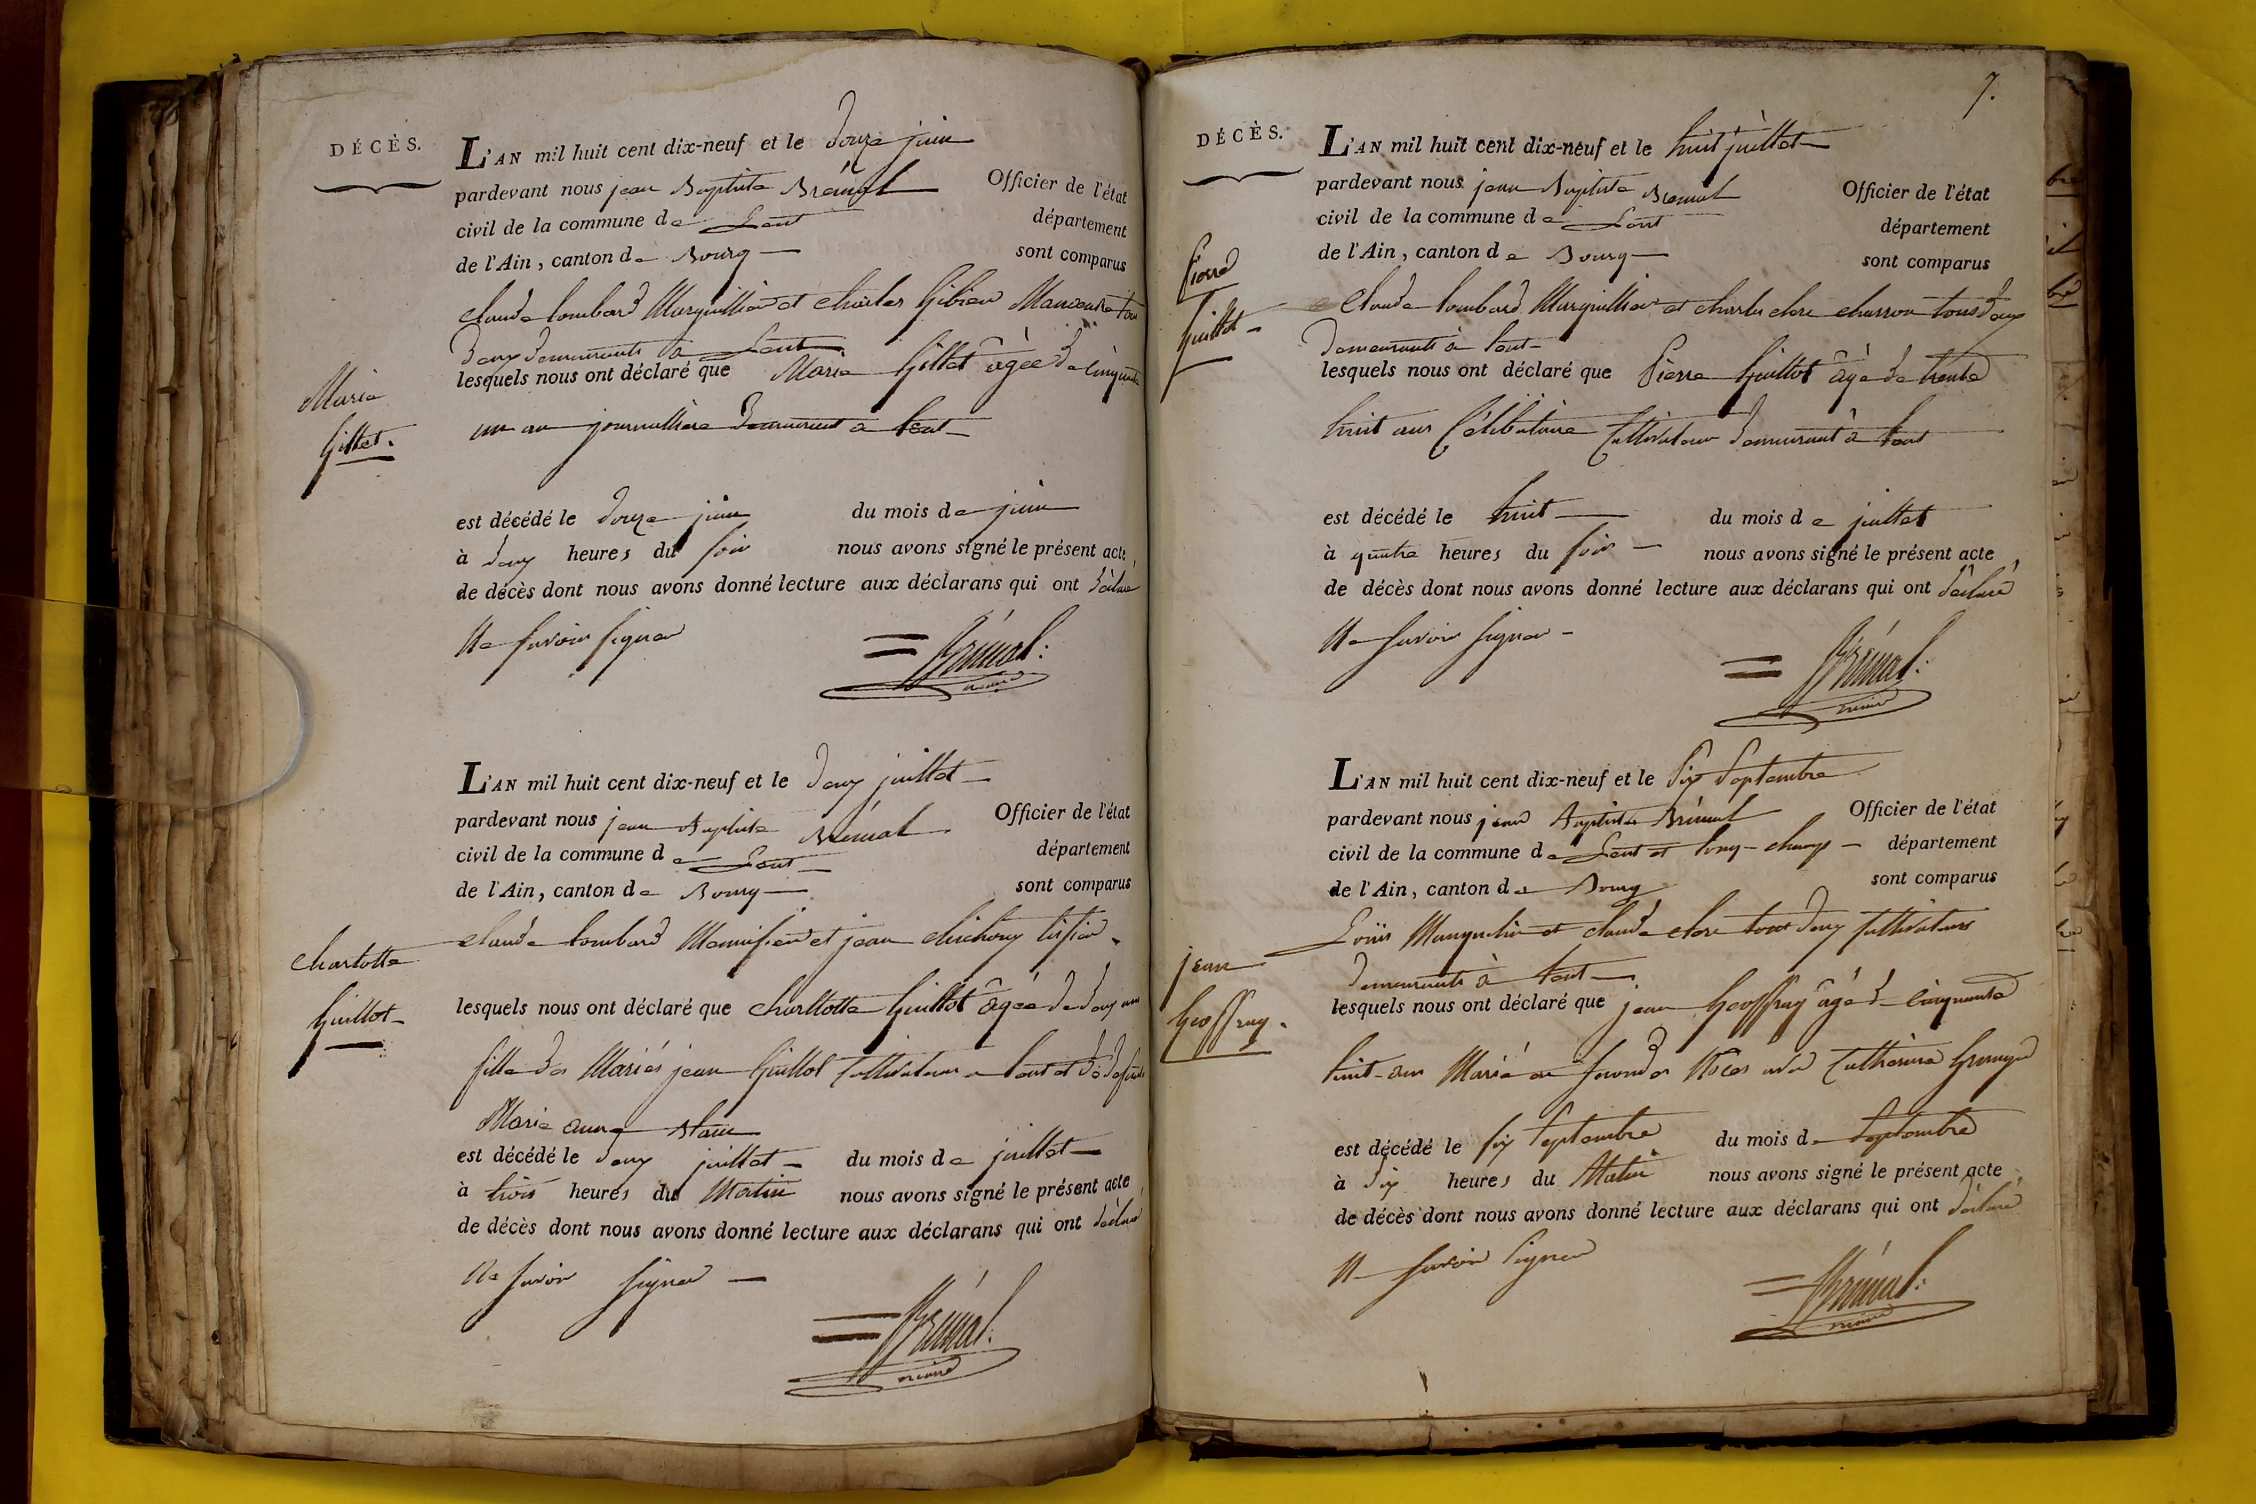 DÉCÈS.
L'AN mil huit cent dix-neuf et le douze juin
pardevant nous jean Baptiste Brémal Officier de l'état
civil de la commune de Lent département
de l'Ain, canton de Bourg sont comparus
claude lombard Marguillier et charles tous
deux demeurants à Lent
lesquels nous ont déclaré que Marie Gillet âgée de cinquante
Maria
Gillet.
un an journalliere demeurant à Lent
est décédé le douze juin du mois de juin
à deux heures du soir nous avons signé le présent acte
de décès dont nous avons donné lecture aux déclarans qui ont déclaré
Ne savoir signer
Brémal:
maire
L'AN mil huit cent dix-neuf et le deux juillet
pardevant nous jean Baptiste Brémal Officier de l'état
civil de la commune de Lent département
de l'Ain, canton de Bourg sont comparus
claude lombard et jean
Charlotte
Guillot
lesquels nous ont déclaré que charllotte Guillot âgée de deux ans
fille des Mariés jean Guillot Cultivateur a Lent et de defunte
Marie anne
est décédé le deux juillet du mois de juillet
à trois heures du Matin nous avons signé le présent acte
de décès dont nous avons donné lecture aux déclarans qui ont déclaré
Ne savoir signer
Brémal.
maire
7.
DÉCÈS.
L'AN mil huit cent dix-neuf et le huit juillet
pardevant nous jean Baptiste Bremal Officier de l'état
civil de la commune de Lent département
de l'Ain, canton de Bourg sont comparus
Pierre
Guillot
Claude lombard Marguillier et charles clere charron tous deux
demeurants à Lent
lesquels nous ont déclaré que Pierre Guillot âgé de trente
huit ans Célibataire Cultivateur demeurant à Lent
est décédé le huit du mois de juillet
à quatre heures du soir nous avons signé le présent acte
de décès dont nous avons donné lecture aux déclarans qui ont déclaré
Ne savoir signer
Brémal:
maire
L'AN mil huit cent dix-neuf et le six Septembre
pardevant nous jean Baptiste Brémal Officier de l'état
civil de la commune de Lent et long-champ département
de l'Ain, canton de Bourg sont comparus
Loüis et claude clere tout deux Cultivateurs
demeurants à Lent
jean
Geoffray.
lesquels nous ont déclaré que jean Geoffray âgé de cinquante
huit ans Marié en secondes Noces avec Catherine
est décédé le six Septembre du mois de Septembre
à dix heures du Matin nous avons signé le présent acte
de décès dont nous avons donné lecture aux déclarans qui ont déclaré
Ne savoir signer
Brémal:
maire